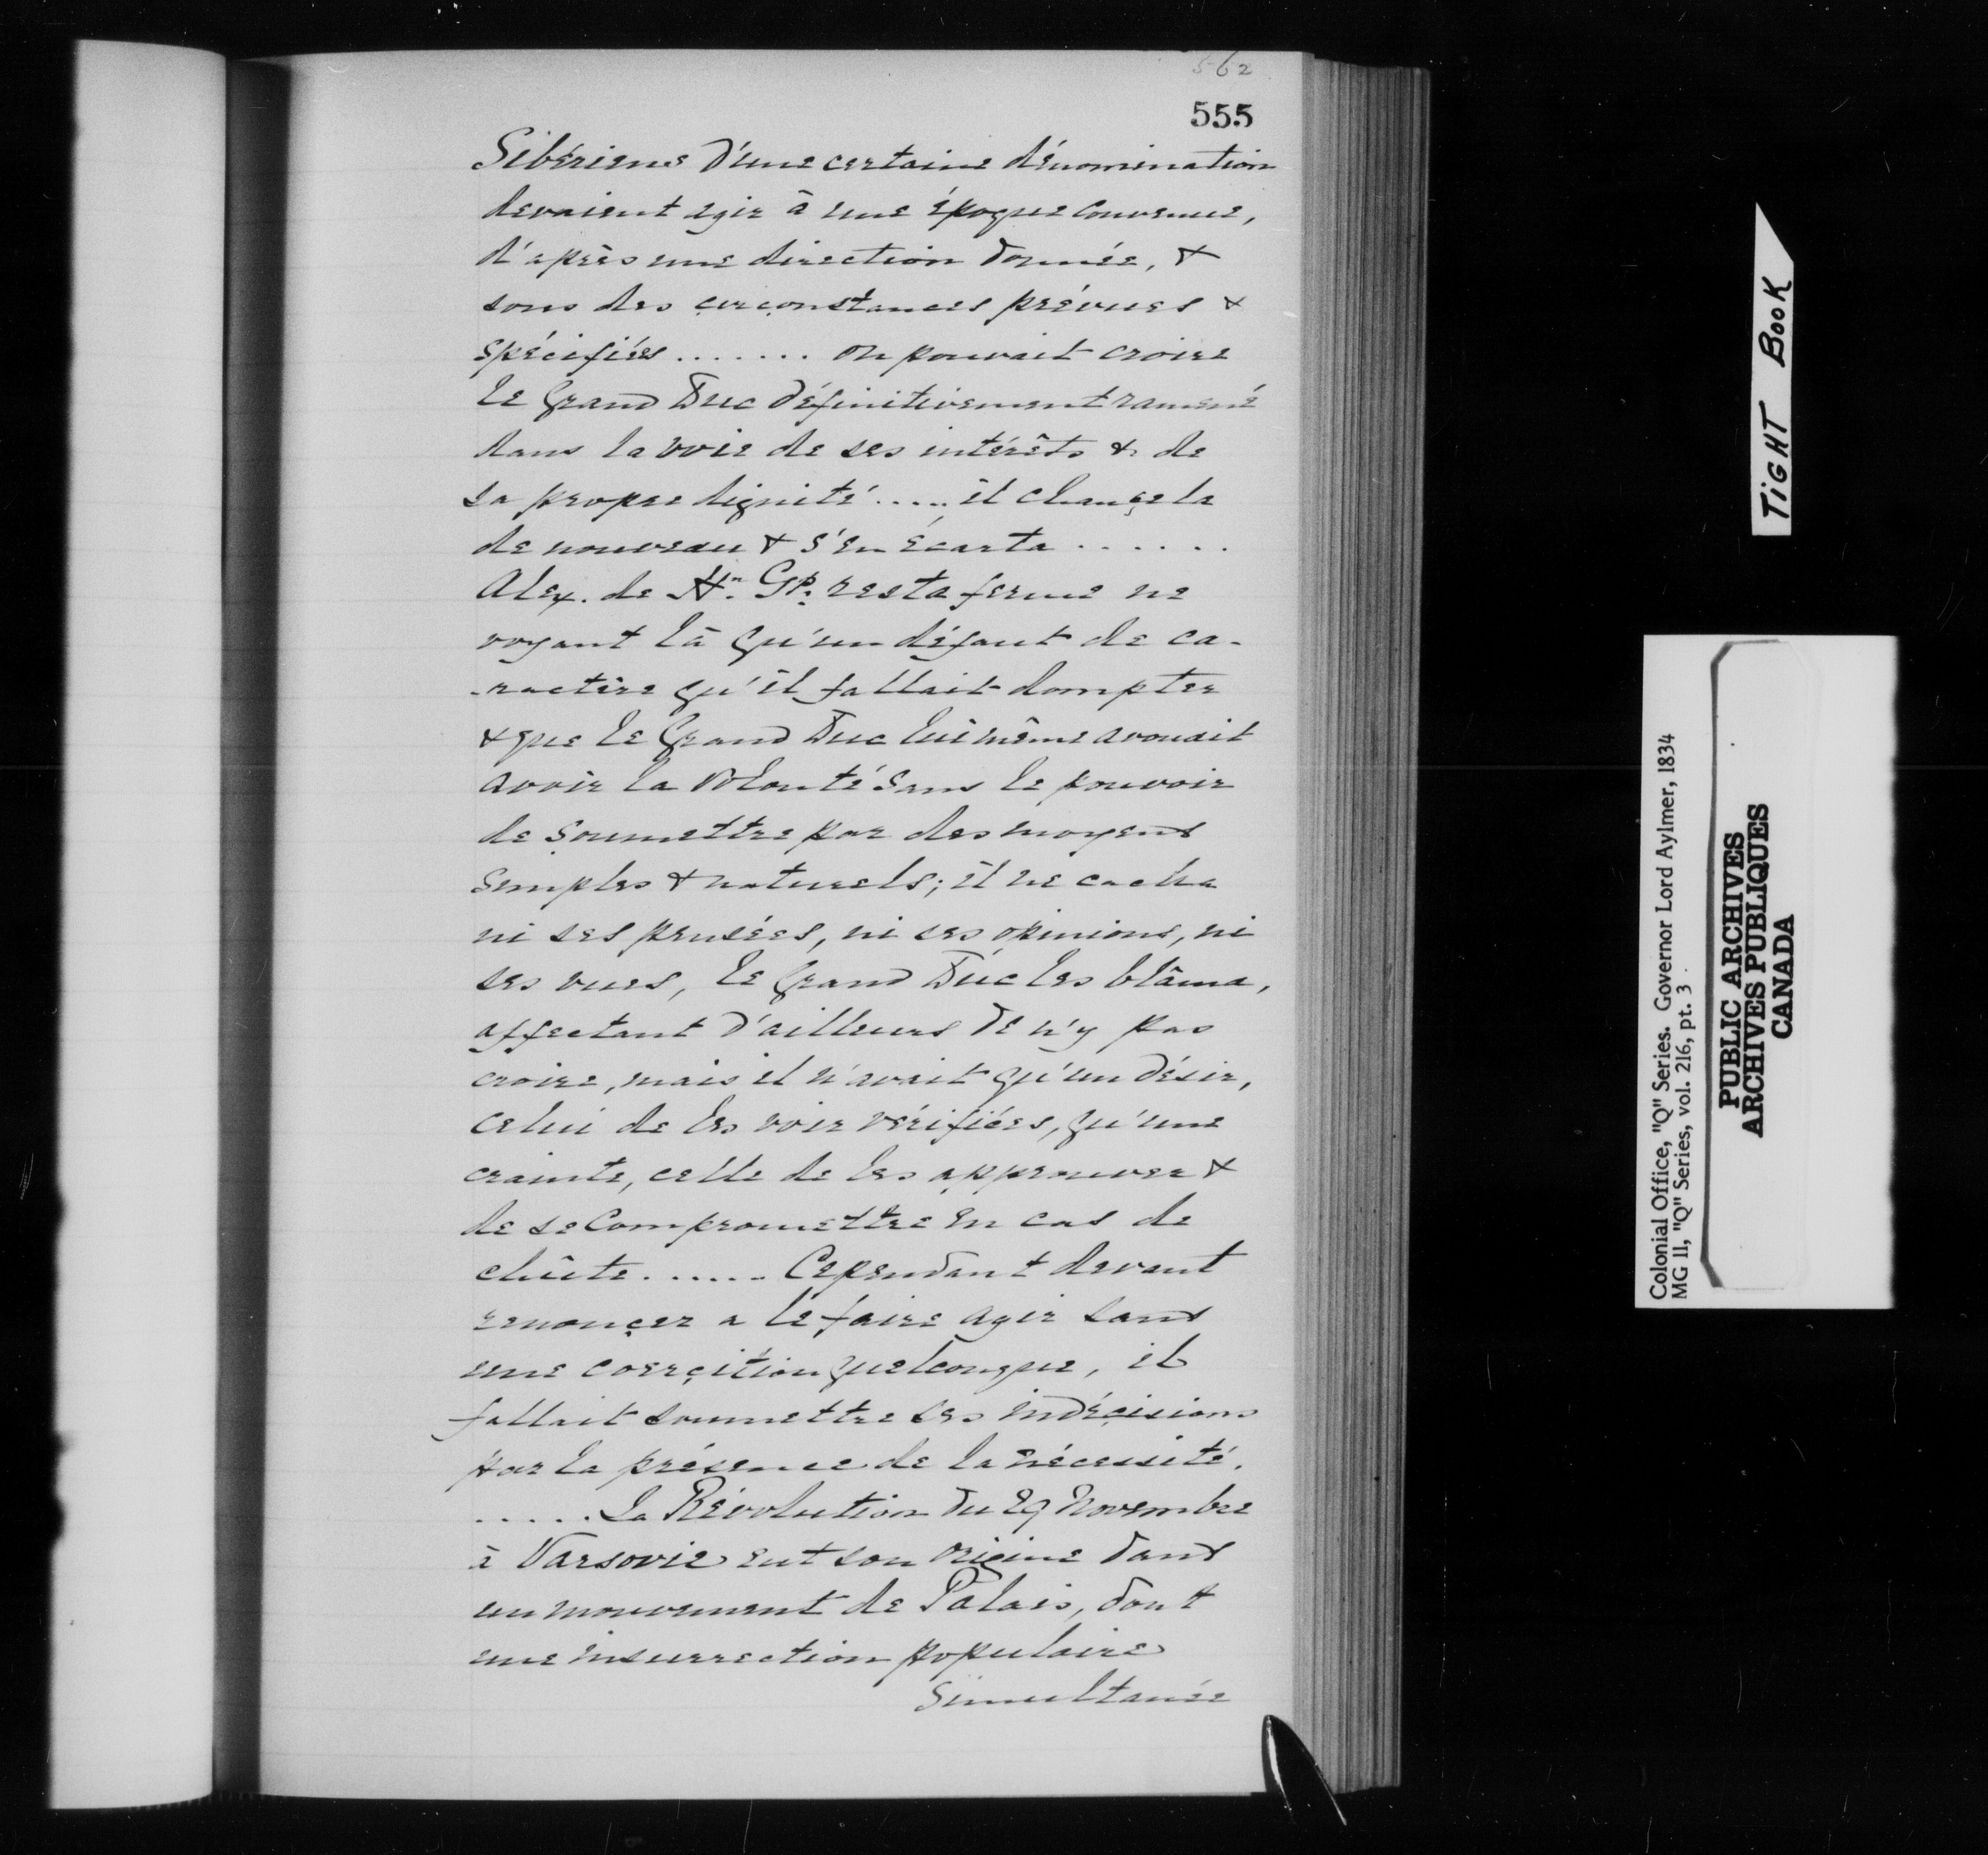 562
555
Sibériens d'une certaine dénomination
devaient agir à une époque convenue,
d'après une direction donnée, &
sous des circonstances prévues &
spécifiées ....... on pouvait croire
le Grand Duc définitivement ramené
dans la voie de ses intérêts & de
sa propre dignité ..... il chancela
de nouveau & s'en écarta ......
Alex. de Hn. Gp. resta ferme ne
voyant là qu'un défaut de ca-
-ractère qu'il fallait dompter
& que le Grand Duc lui même avouait
avoir la volonté sans le pouvoir
de soumettre par des moyens
simples & naturels; il ne cacha
ni ses pensées, ni ses opinions, ni
ses vues, le Grand Duc les blâma,
affectant d'ailleurs de n'y pas
croire, mais il n'avait qu'un désir,
celui de les voir vérifiées, qu'une
crainte, celle de les approuver &
de se compromettre en cas de
chûte ...... Cependant devant
renonçer a le faire agir sans
une coerçition quelconque, il
fallait soumettre ses indécisions
par la présence de la nécessité.
..... La Révolution du 29 Novembre
à Varsovie eut son origine dans
un mouvement de Palais, dont
une insurrection populaire
simultanée
TIGHT BOOK
Colonial Office, "Q" Series. Governor Lord Aylmer, 1834
MG 11, "Q" Series, vol. 216, pt. 3
PUBLIC ARCHIVES
ARCHIVES PUBLIQUES
CANADA